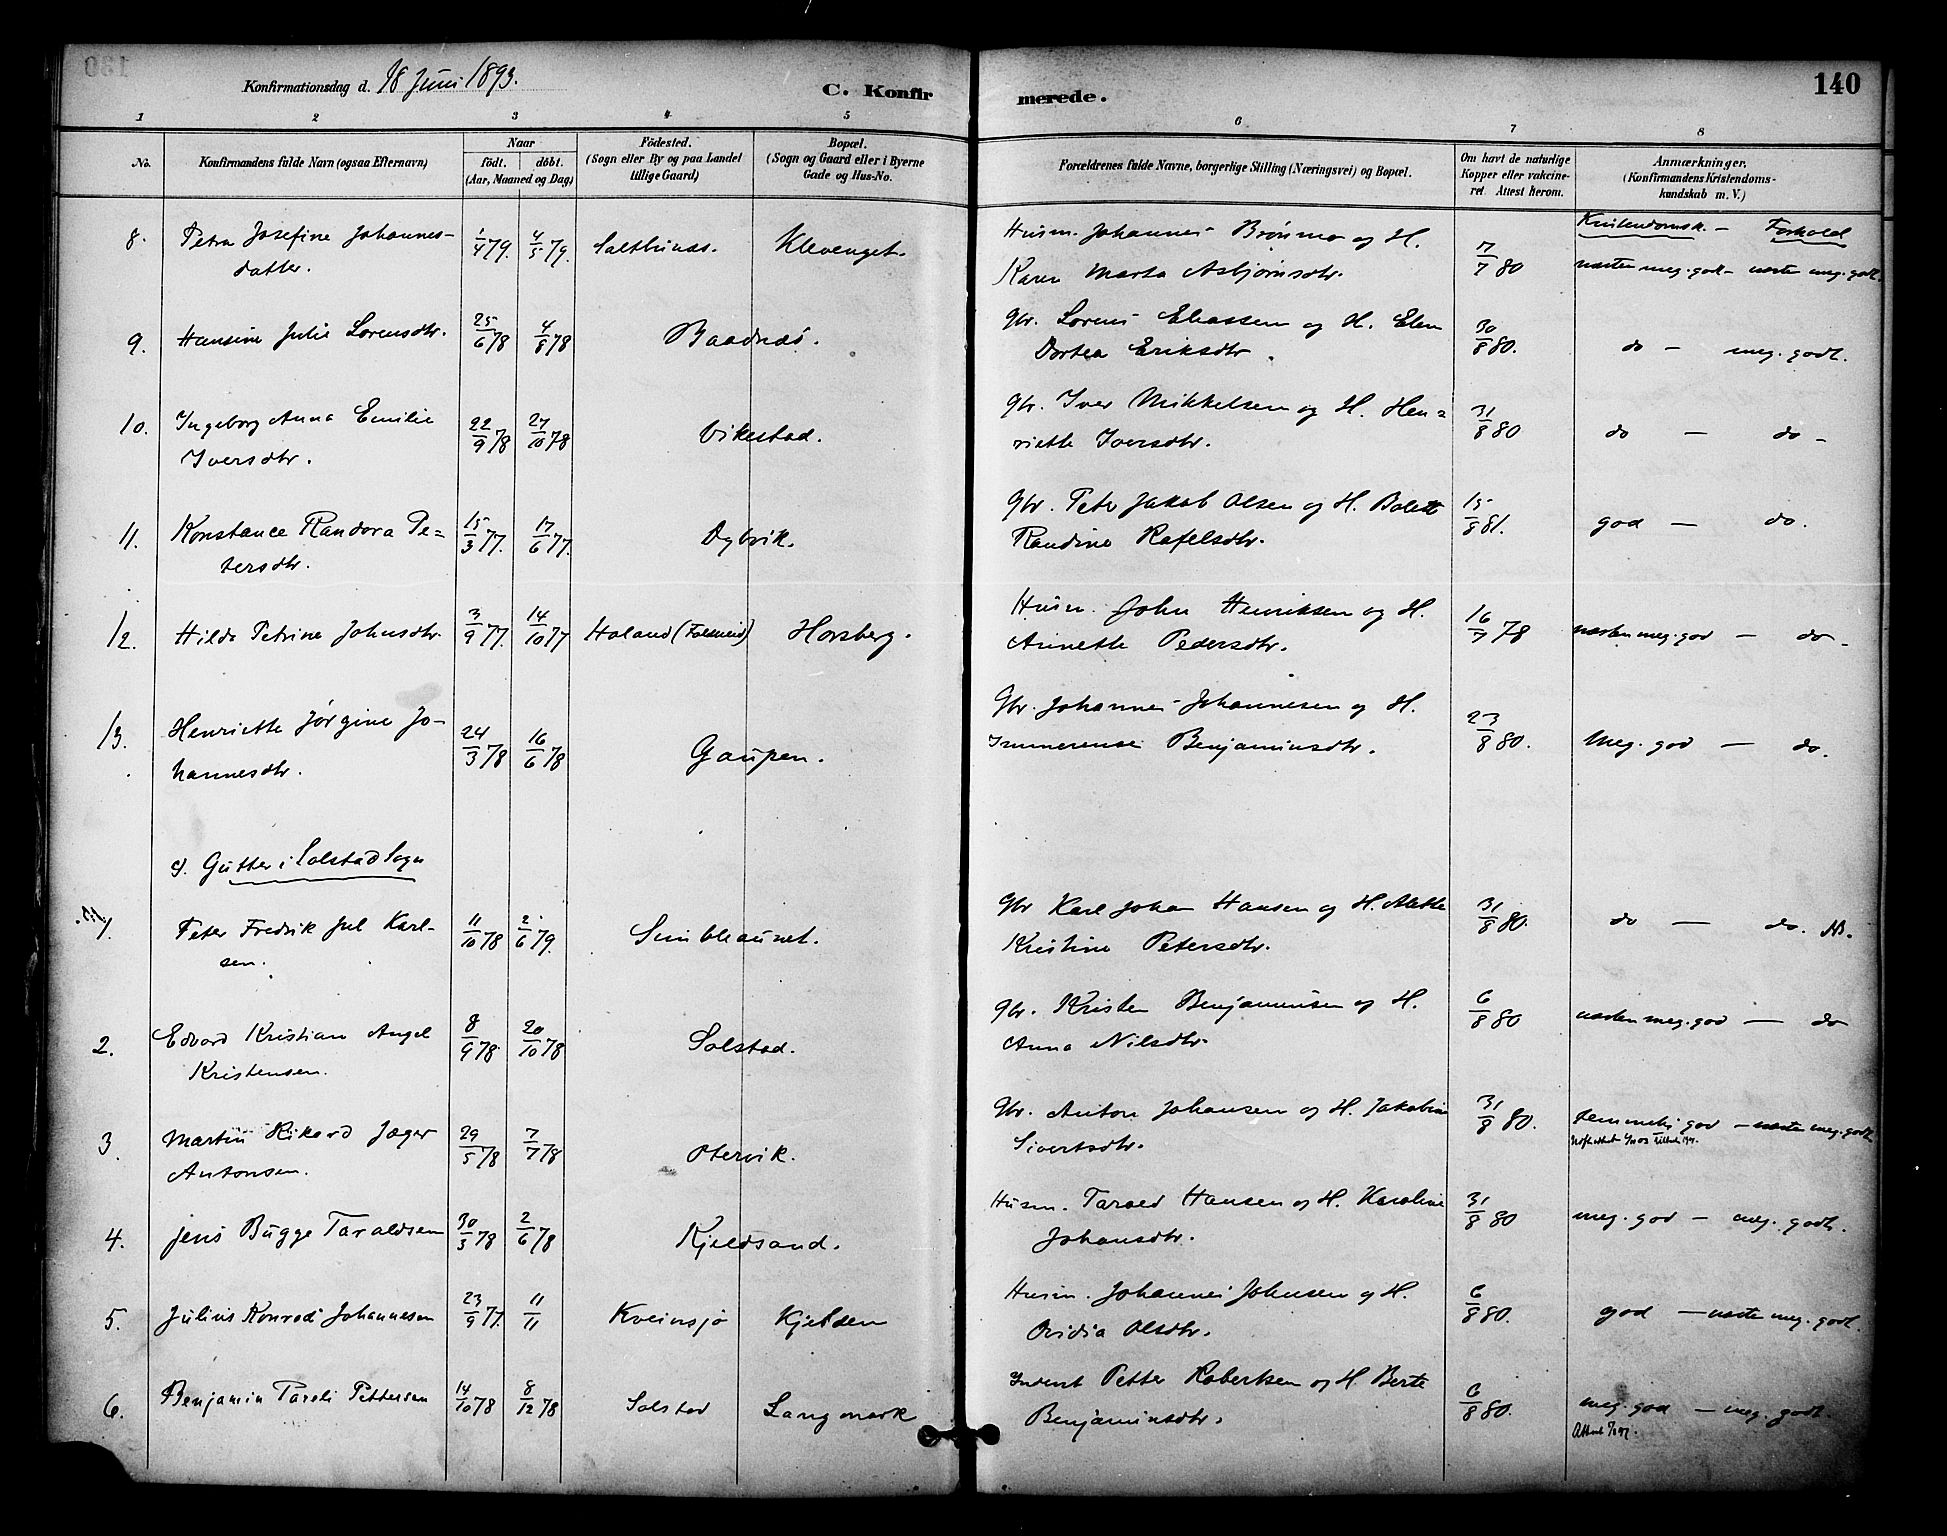 Konfirmationsdag d. 18 Juni 1893.
C. Konfir
merede.
140
1 2 3 4 5 6 7 8
No.
Konfirmandens fulde Navn (ogsaa Efternavn)
Naar
født. døbt.
(Aar, Maaned og Dag)
Fødested.
(Sogn eller By og paa Landet
tillige Gaard)
Bopæl.
(Sogn og Gaard eller i Byerne
Gade og Hus-No.
Forældrenes fulde Navne, borgerlige Stilling (Næringsvei) og Bopæl.
Om havt de naturlige
Kopper eller vakcine-
ret. Attest herom.
Anmærkninger.
(Konfirmandens Kristendoms-
kundskab m. V.)
Kristendomsk. — Forhold
8. Petra Josefine Johannes- 1/4 79. 4/5 79. Klevenget. Husm. Johannes Brønmo og H. 7/7 80 næsten meg. god - næsten meg. godt.
datter. Karen Marta Asbjørnsdtr.
9. Hansine Julie Lorensdtr. 25/6 78 4/8 78 Baadnæs. Gbr. Lorens Eliassen og H. Elen 30/8 80. do - meg. godt.
Dortea Eriksdtr.
10. Ingeborg Anna Emilie 22/9 78 27/10 78 Vikestad. Gbr. Iver Mikkelsen og H. Hen= 31/8 80 do — do -
Iversdtr. riette Iversdtr.
11. Konstance Randora Pe= 15/3 77. 17/6 77. Dybvik. Gbr. Peter Jakob Olsen og H. Bolette 15/8 81. god — do.
tersdtr. Randine Rafelsdtr.
12. Hilda Petrine Johnsdtr. 3/9 77. 14/10 77 Haland Horsberg. Husm. John Henriksen og H. 16/7 78 næsten meg. god — do -
Annette Pedersdtr.
13. Henriette Jørgine Jo- 24/3 78 16/6 78 Gaupen. Gbr. Johannes Johannesen og H. 23/8 80. Meg. god — do.
hannesdtr. Immerense Benjaminsdtr.
c). Gutter i Solstad Sogn
1. Peter Fredrik Jul Karl- 11/10 78 2/6 79. Simbleaunet. Gbr Karl Johan Hansen og H. Alette 31/8 80. do — do. NB.
sen. Kristine Petersdtr.
2. Edvard Kristian Angel 8/9 78. 20/10 78 Solstad. Gbr. Kristen Benjaminsen og H. 6/8 80 næsten meg. god — do
Kristensen. Anna Nilsdtr.
3. Martin Rikard Jæger 29/5 78 7/7 78 Otervik. Gbr. Anton Johansen og H. Jakobine 31/8 80. temmelig god - næste meg. godt
Antonsen. Sivertsdtr.
4. Jens Bugge Taraldsen 30/3 78 2/6 78 Kjeldsand. Husm. Tarald Hansen og H. Karoline 31/8 80 meg. god — meg. godt.
Johansdtr.
5. Julius Konrad Johannesen 23/9 77. 11/11 Kveinsjø Kjelden Husm. Johannes Johnsen og H. 6/8 80. god — næste meg. godt.
Ovidia Olsdtr.
6. Benjamin Pareli Pettersen 14/10 78 8/12 78 Solstad Langmark Inderst Petter Robertsen og H Berte 6/8 80. meg. god — meg. godt.
Benjaminsdtr.